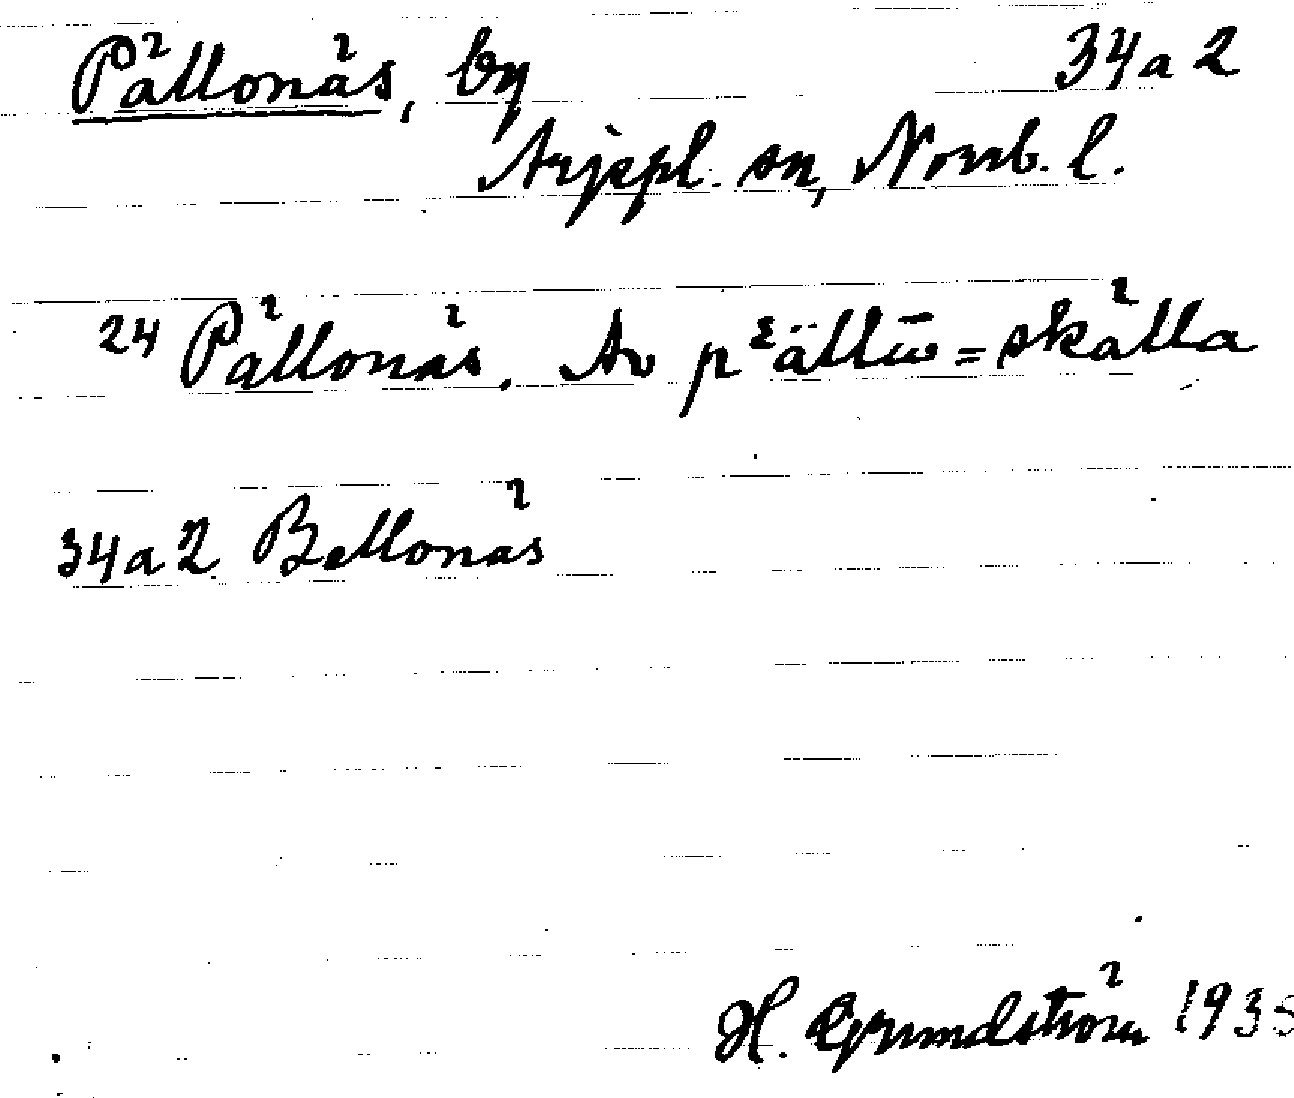 Pällonäs, by 34a2
Arjepl. sn, Norrb. l.
24 Pällonäs. Av = skälla
34a2 Bellonäs
H. Grundström 1935